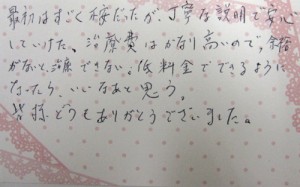 最初はすごく不安だったが、丁寧な説明で安心
していけた。治療費はかなり高いので、余裕
がないと治療できない。低料金でできるように
なったら、いいなあと思う。
皆様、どうもありがとうございました。